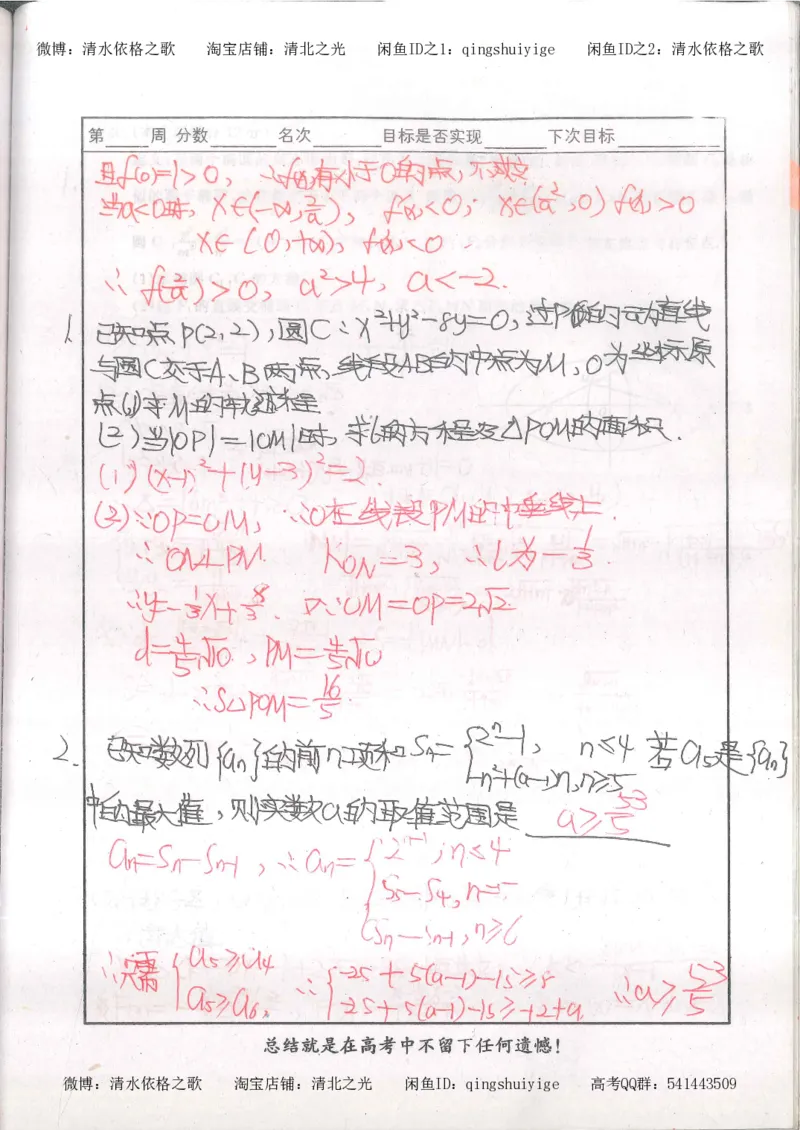 微博：清水依格之歌 淘宝店铺：清北之光 闲鱼ID之1：qingshuiyige 闲鱼ID之2：清水依格之歌
第____周 分数______名次______ 目标是否实现______下次目标______
且f(0)=1>0, ∴f(x)有小于0的点, 不成立
当a<0时, x∈(-∞,2/a), f(x)<0; x∈(2/a,0) f(x)>0
x∈(0,+∞), f(x)<0.
∴f(2/a)>0, a²>4, a<-2.
1. 已知点P(2,2), 圆C: x²+y²-8y=0, 过P的动直线
与圆C交于A、B两点, 线段AB的中点为M, O为坐标原
点(1)求M的轨迹方程
(2)当|OP|=|OM|时, 求l的方程及△POM的面积.
(1) (x-1)²+(y-3)²=2.
(2)∵OP=OM, ∴O在线段PM的中垂线上.
∴ON⊥PM. kON=3, ∴l为-1/3
∴y=-1/3x+8/3. 又∵OM=OP=2√2
d=4/5√10, PM=4/5√10
∴S△POM=16/5.
2. 已知数列{an}的前n项和Sn={2ⁿ-1, n≤4 若a5是{an}
-n²+(a-1)n, n≥5
中的最大值, 则实数a的取值范围是 a≥53/5
an=Sn-Sn-1, ∴an={2ⁿ⁻¹, n≤4
S5-S4, n=5
Sn-Sn-1, n≥6
∴需{a5≥a4 ∴{-25+5(a-1)-15≥8 ∴a≥53/5
a5≥a6, -25+5(a-1)-15≥-12+a
总结就是在高考中不留下任何遗憾！
微博：清水依格之歌 淘宝店铺：清北之光 闲鱼ID：qingshuiyige 高考QQ群：541443509